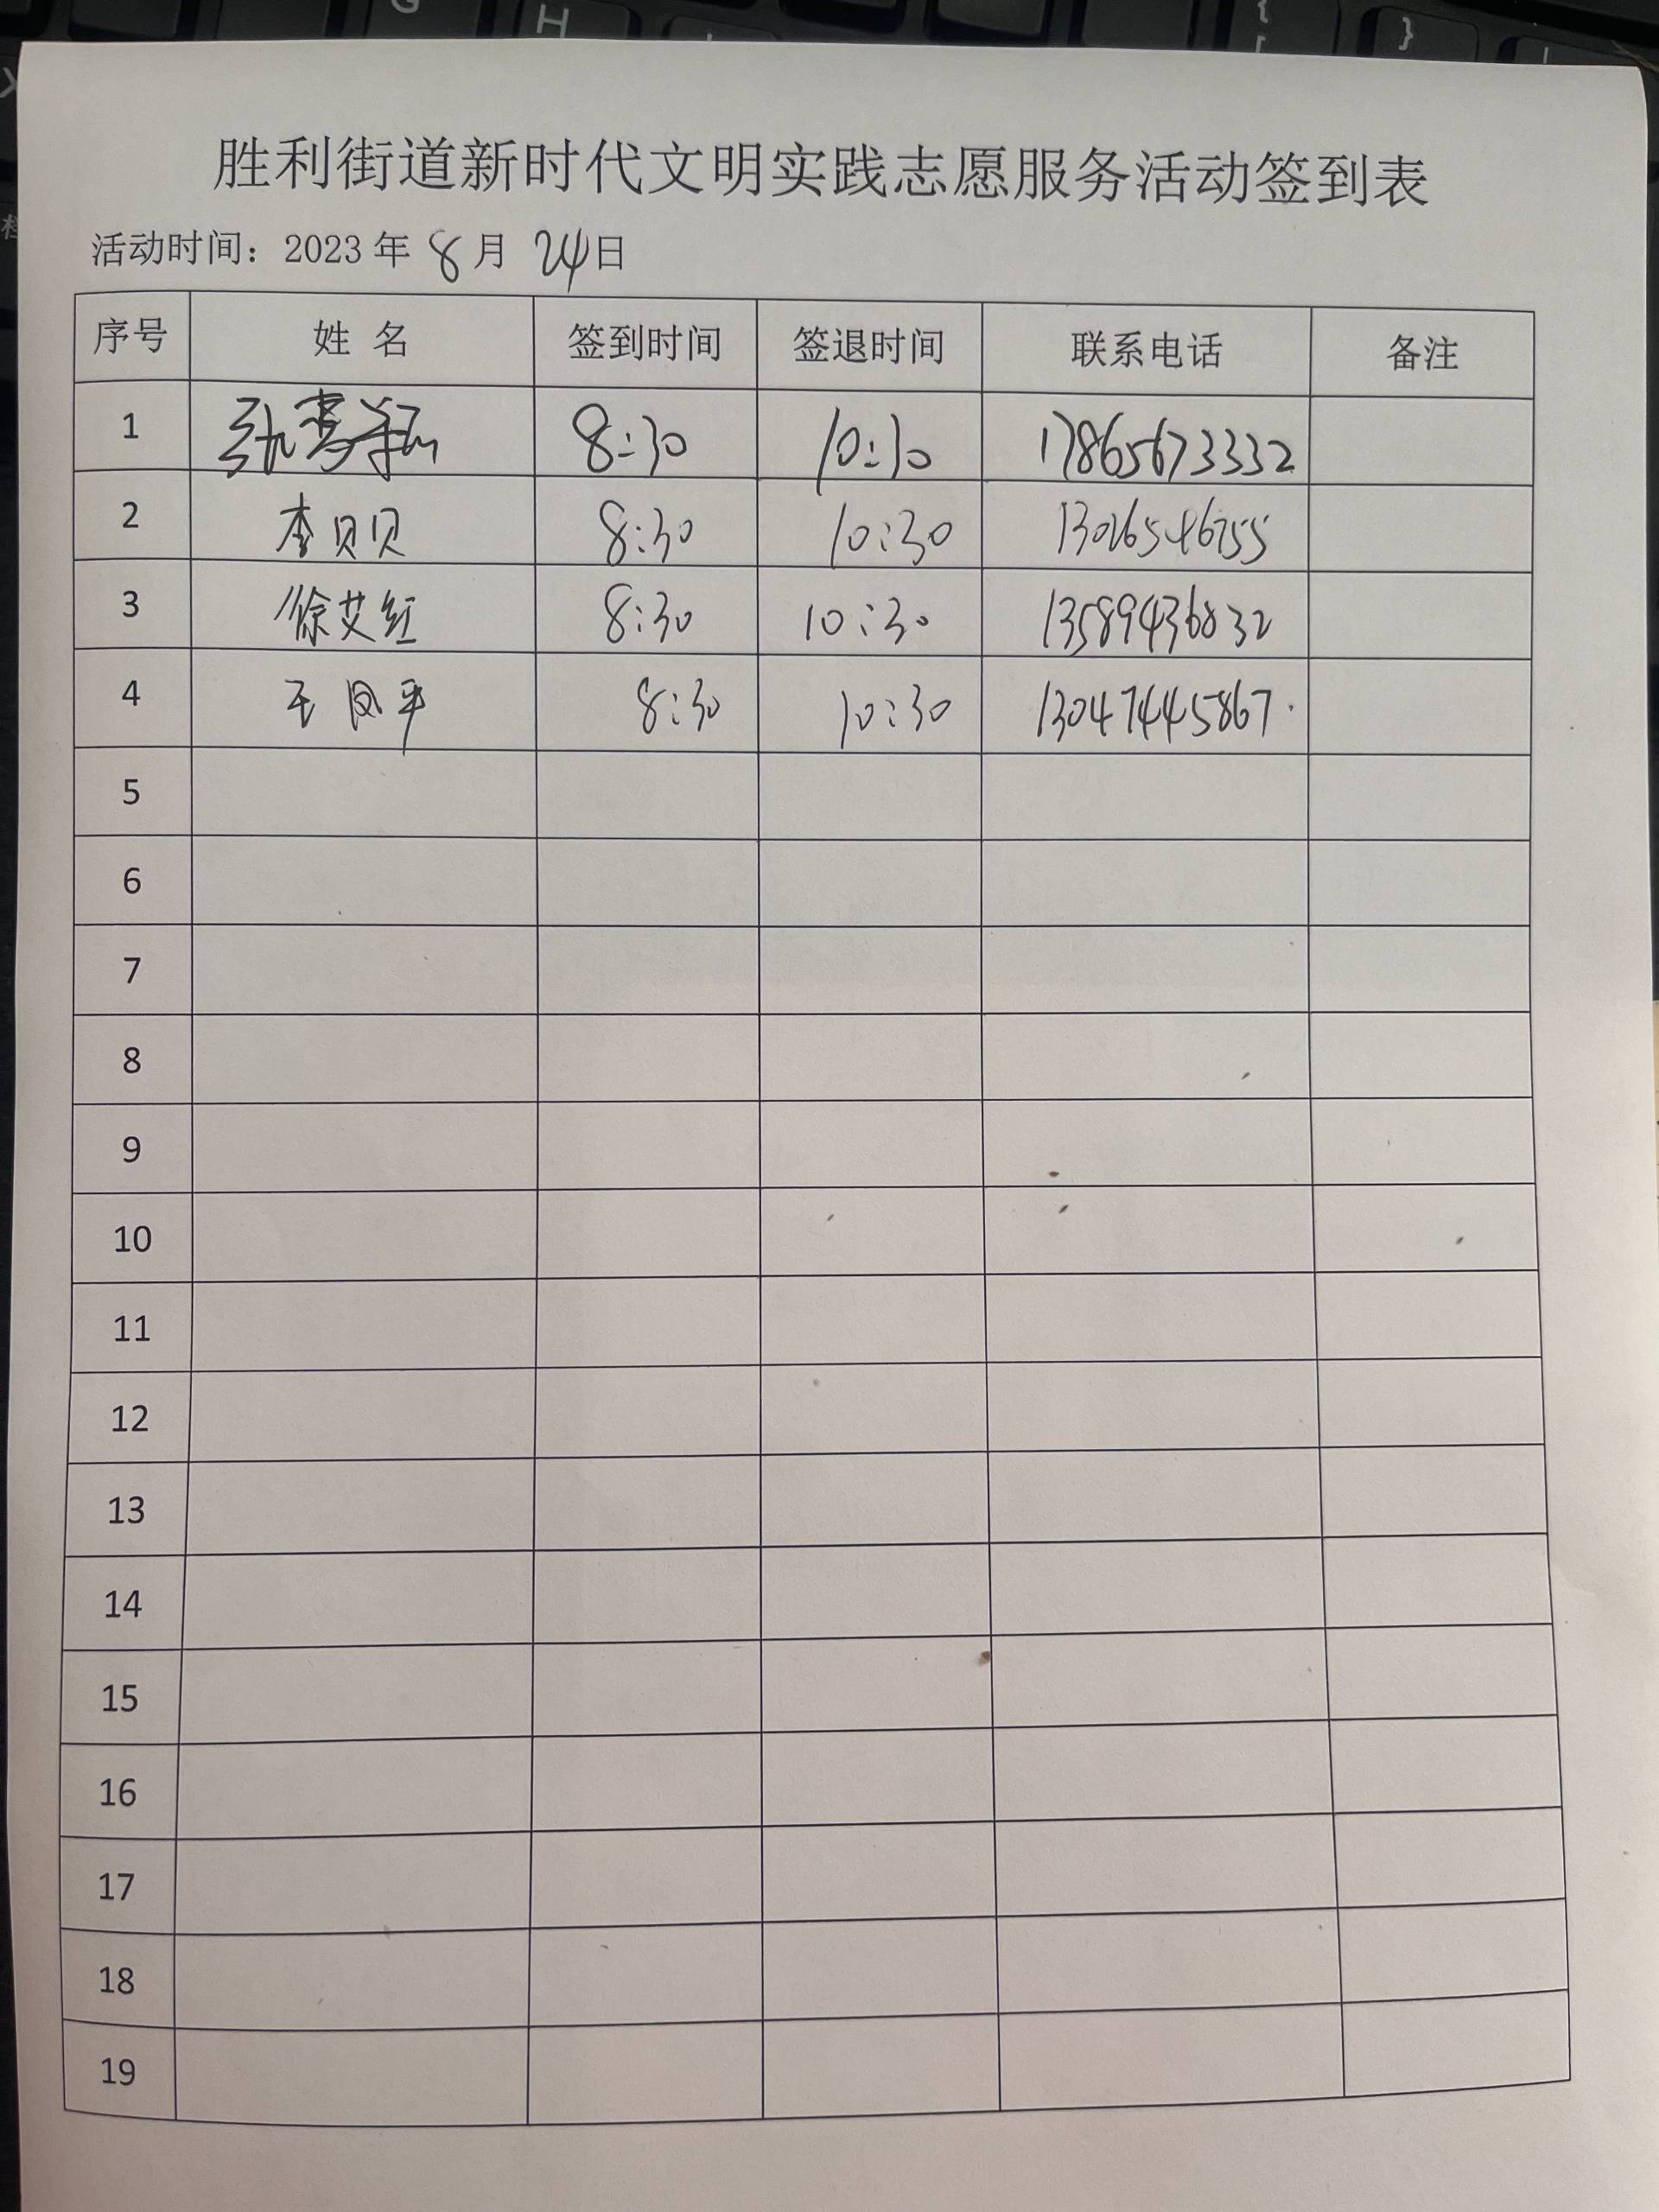 胜利街道新时代文明实践志愿服务活动签到表
活动时间：2023 年 8 月 24 日
序号 姓 名 签到时间 签退时间 联系电话 备注
1 8:30 10:30 17865673332
2 李贝贝 8:30 10:30
3 徐艾红 8:30 10:30 13589436832
4 王凤平 8:30 10:30 13047445867
5
6
7
8
9
10
11
12
13
14
15
16
17
18
19